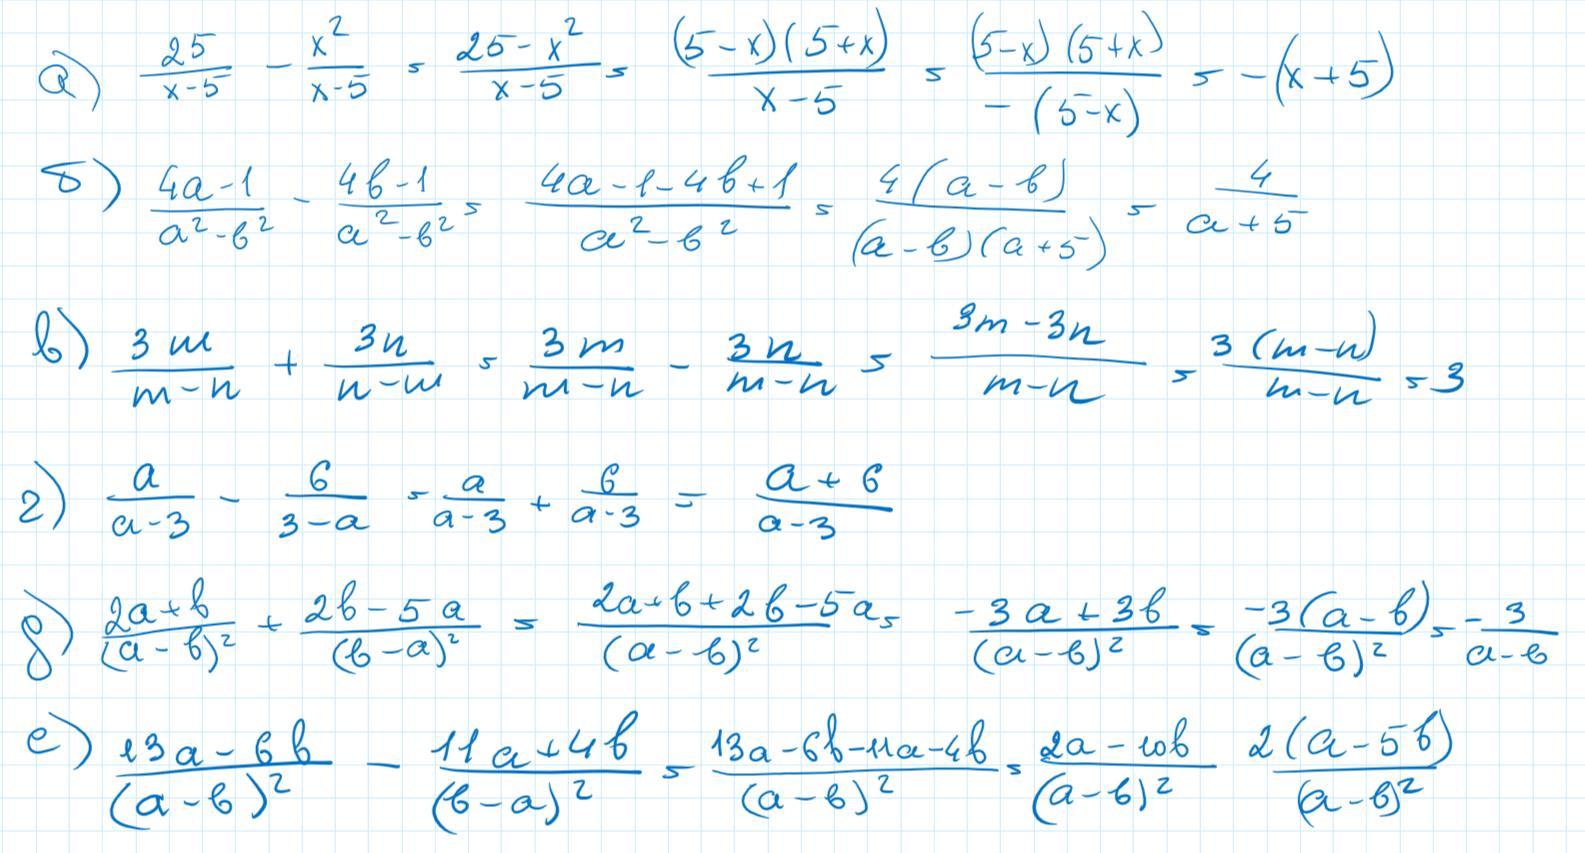 а) 25/(x-5) - x²/(x-5) = (25-x²)/(x-5) = (5-x)(5+x)/(x-5) = (5-x)(5+x)/(-(5-x)) = -(x+5)
б) (4a-1)/(a²-b²) - (4b-1)/(a²-b²) = (4a-1-4b+1)/(a²-b²) = 4(a-b)/((a-b)(a+5)) = 4/(a+5)
в) 3m/(m-n) + 3n/(n-m) = 3m/(m-n) - 3n/(m-n) = (3m-3n)/(m-n) = 3(m-n)/(m-n) = 3
г) a/(a-3) - 6/(3-a) = a/(a-3) + 6/(a-3) = (a+6)/(a-3)
д) (2a+b)/(a-b)² + (2b-5a)/(b-a)² = (2a+b+2b-5a)/(a-b)² = (-3a+3b)/(a-b)² = -3(a-b)/(a-b)² = -3/(a-b)
е) (13a-6b)/(a-b)² - (11a+4b)/(b-a)² = (13a-6b-11a-4b)/(a-b)² = (2a-10b)/(a-b)² 2(a-5b)/(a-b)²